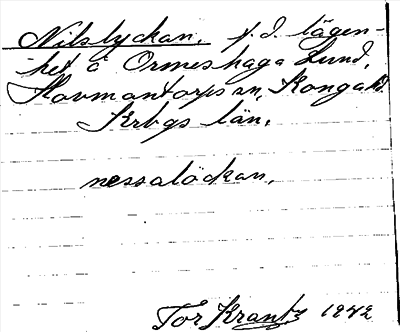 Nilslyckan, f.d. lägen-
het å Ormeshaga Lund,
Hovmantorps sn, Konga hd.
Krbgs län.
nessalöckan.
Tor Krantz 1942